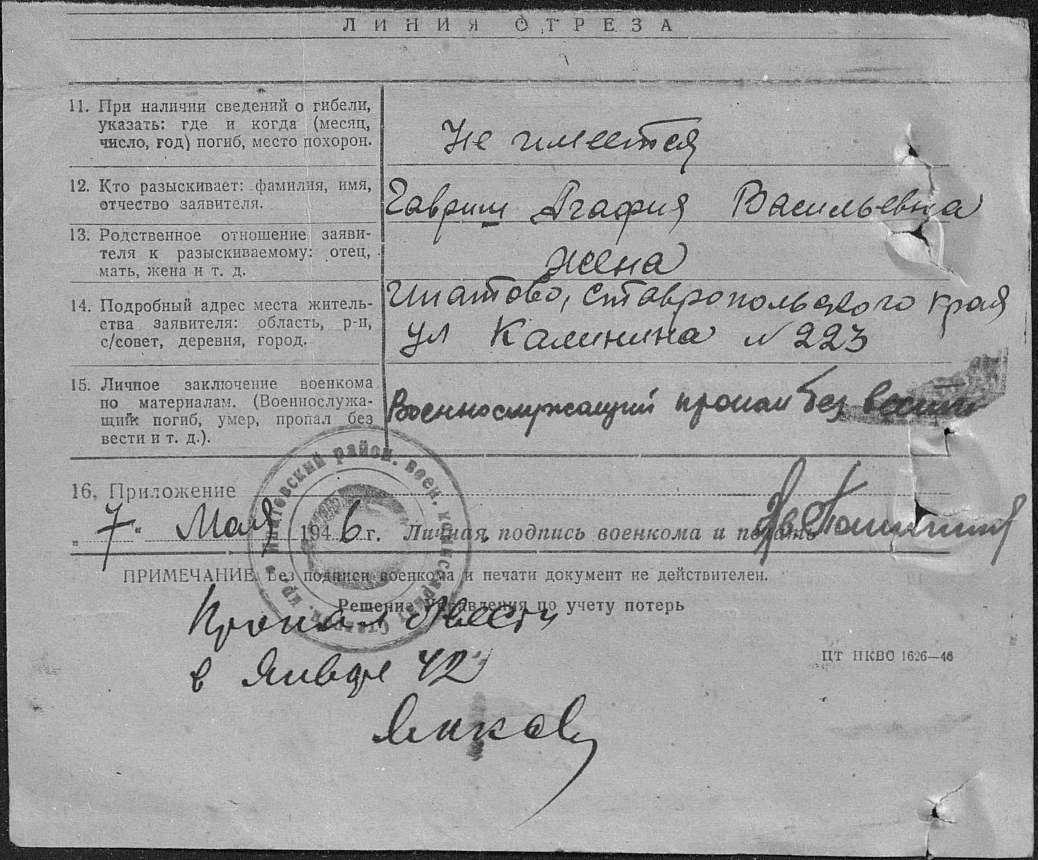 ЛИНИЯ ОТРЕЗА
11. При наличии сведений о гибели,
указать: где и когда (месяц,
число, год) погиб, место похорон.
Не имеется
12. Кто разыскивает: фамилия, имя,
отчество заявителя.
Гавриш Агафия Васильевна
13. Родственное отношение заяви-
теля к разыскиваемому: отец,
мать, жена и т. д.
жена
14. Подробный адрес места житель-
ства заявителя: область, р-н,
с/совет, деревня, город.
Ипатово, Ставропольского края
ул Калинина №223
15. Личное заключение военкома
по материалам. (Военнослужа-
щий погиб, умер, пропал без
вести и т. д.).
Военнослужащий пропал без вести
16. Приложение
"7" Мая 1946 г. Личная подпись военкома и печать
ПРИМЕЧАНИЕ. Без подписи военкома и печати документ не действителен.
Решение Управления по учету потерь
Пропал
в Январе 42
ЦТ НКВО 1626—46
район. воен.